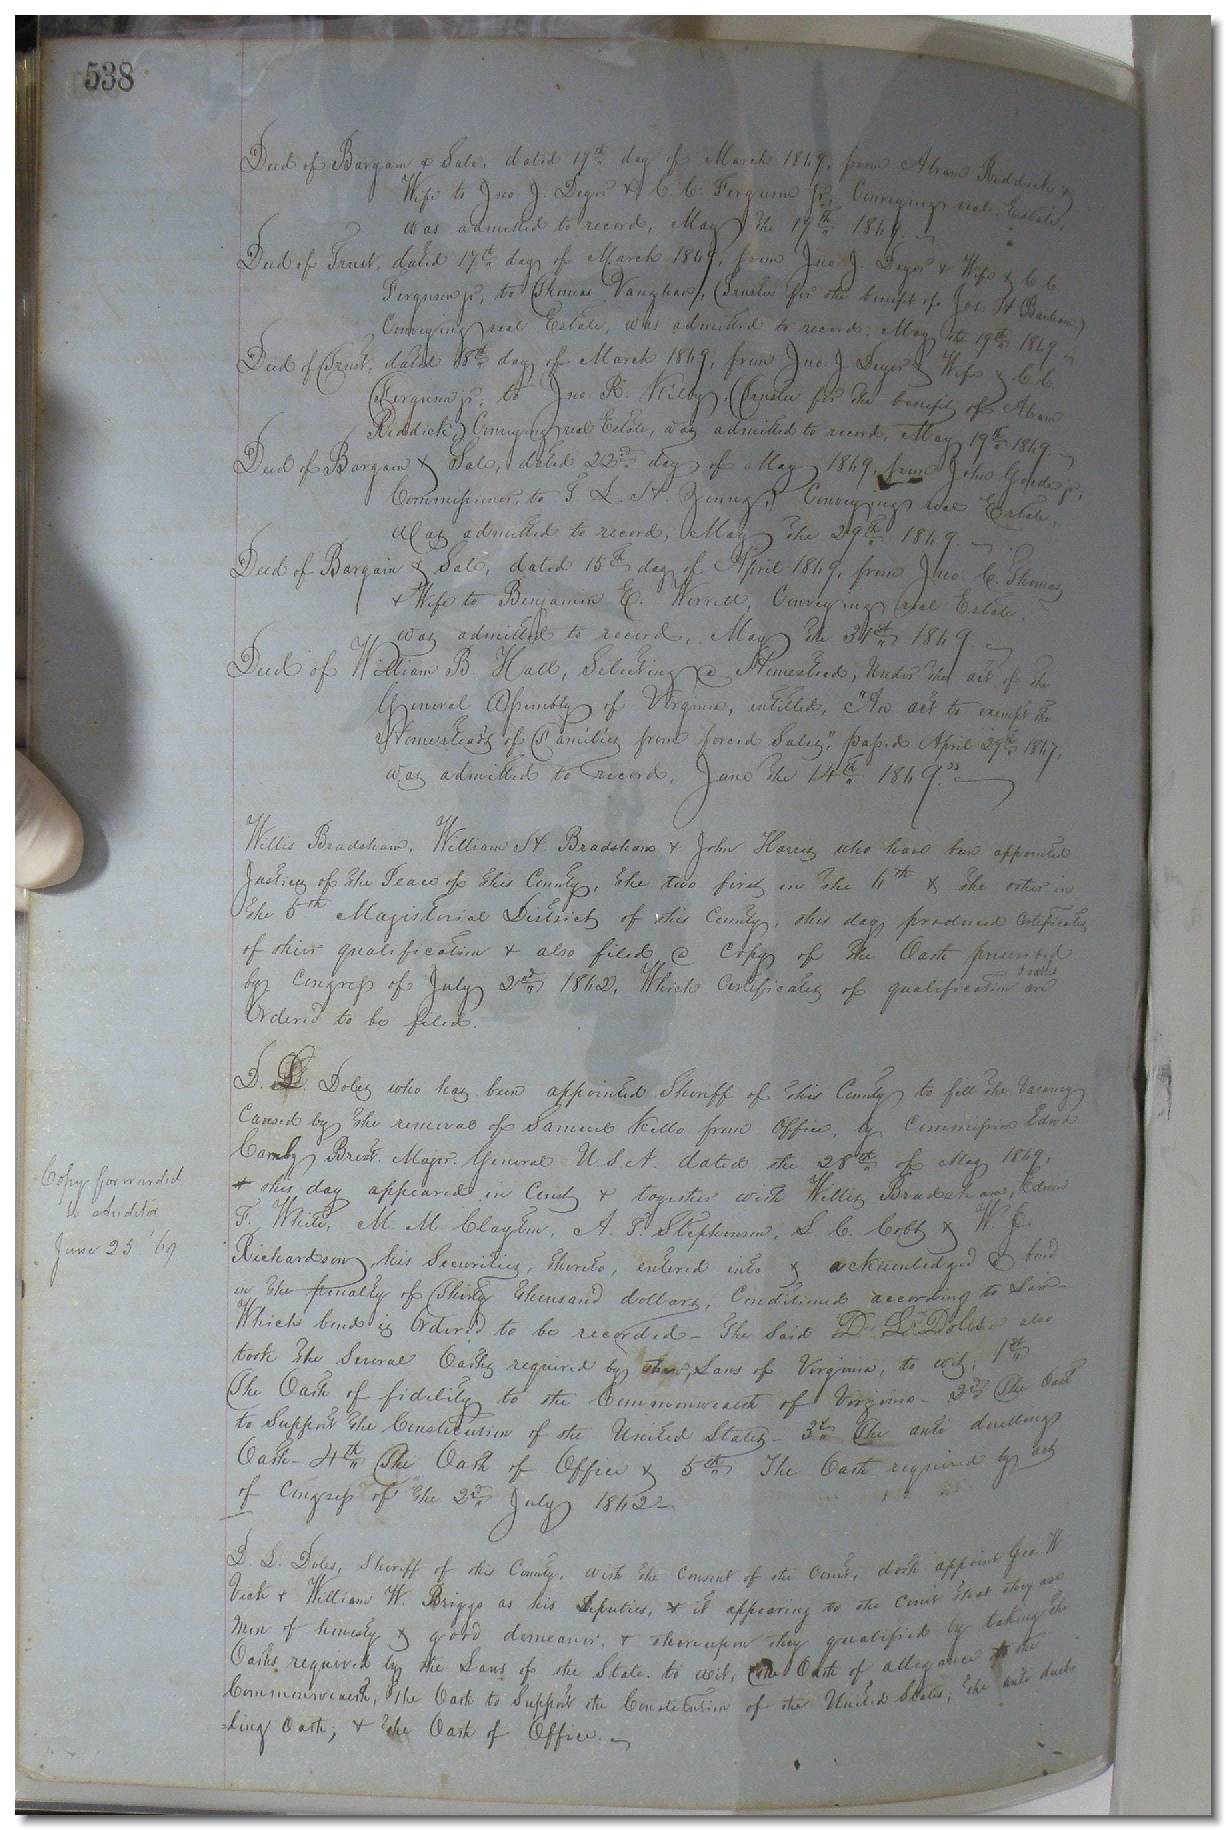 538
Deed of Bargain & Sale, dated 17th day of March 1869, from Abram Riddick &
Wife to Jno. J. Deyer & C. C. Ferguson Jr, Conveying real Estate,
was admitted to record, May the 19th 1869.
Deed of Trust, dated 17th day of March 1869, from Jno. J. Deyer & Wife & C. C.
Ferguson jr, to Thomas Vaughan, (Trustee for the benefit of Jos. H. Barham,)
Conveying real Estate, was admitted to record, May the 19th 1869.
Deed of Trust, dated 18th day of March 1869, from Jno. J Deyer & Wife & C. C.
Ferguson jr, to Jno. R. Kilby, (Trustee for the benefit of Abram
Riddick,) Conveying real Estate, was admitted to record, May 19th 1869.
Deed of Bargain & Sale, dated 22nd day of May 1869, from John Goode jr,
Commissioner, to F. L. H. Young, Conveying real Estate,
Was admitted to record, May the 29th 1869.
Deed of Bargain & Sale, dated 15th day of April 1869, from Jno. C. Thomas
& Wife to Benjamin E. Worrell, Conveying real Estate,
was admitted to record, May the 31st 1869.
Deed of William B Hall, Selecting a Homestead, Under the act of the
General Assembly of Virginia, entitled, "An act to exempt the
Homesteads of Families from forced Sales", passed April 29th 1867,
was admitted to record, June the 14th 1869."
Willis Bradshaw, William H. Bradshaw & John Harris who have been appointed
Justices of the Peace of this County, the two first in the 6th & the other in
the 5th Magisterial District of this County, this day produced Certificates
of their qualification & also filed a Copy of the Oath prescribed
by Congress of July 2nd 1862, Which Certificates of qualification & oaths are
Ordered to be filed.
D. L. Doles who has been appointed Sheriff of this County to fill the Vacancy
Caused by the removal of Samuel Kello from Office, by Commission Edwd
Canby Brevt. Major. General U.S.A. dated the 28th of May 1869,
& this day appeared in Court & together with Willis Bradshaw, Edwin
F. White, M. M. Clayton, A. T. Stephenson, L. C. Cobb & W. J.
Richardson, his Securities, thereto, entered into & acknowledged a bond
in the penalty of Thirty thousand dollars, Conditioned according to Law
Which bond is Ordered to be recorded - The Said D. L. Doles also
took the Several Oaths required by the Laws of Virginia, to wit; 1st
The Oath of fidelity to the Commonwealth of Virginia - 2nd The Oath
to Support the Constitution of the United States - 3d The anti duelling
Oath - 4th The Oath of Office & 5th The Oath required by act
of Congress of the 2nd July 1862 -
Copy forwarded
to auditor
June 25 '69
D. L. Doles, Sheriff of this County, with the Consent of the Court, doth appoint Geo. W
Vick & William W. Briggs as his Deputies, & it appearing to the Court that they are
Men of honesty & good demeanor, & thereupon they qualified by taking the
Oaths required by the Laws of the State, to wit, the Oath of allegiance to the
Commonwealth, The Oath to Support the Constitution of the United States; The anti duel-
-ling Oath; & The Oath of Office.